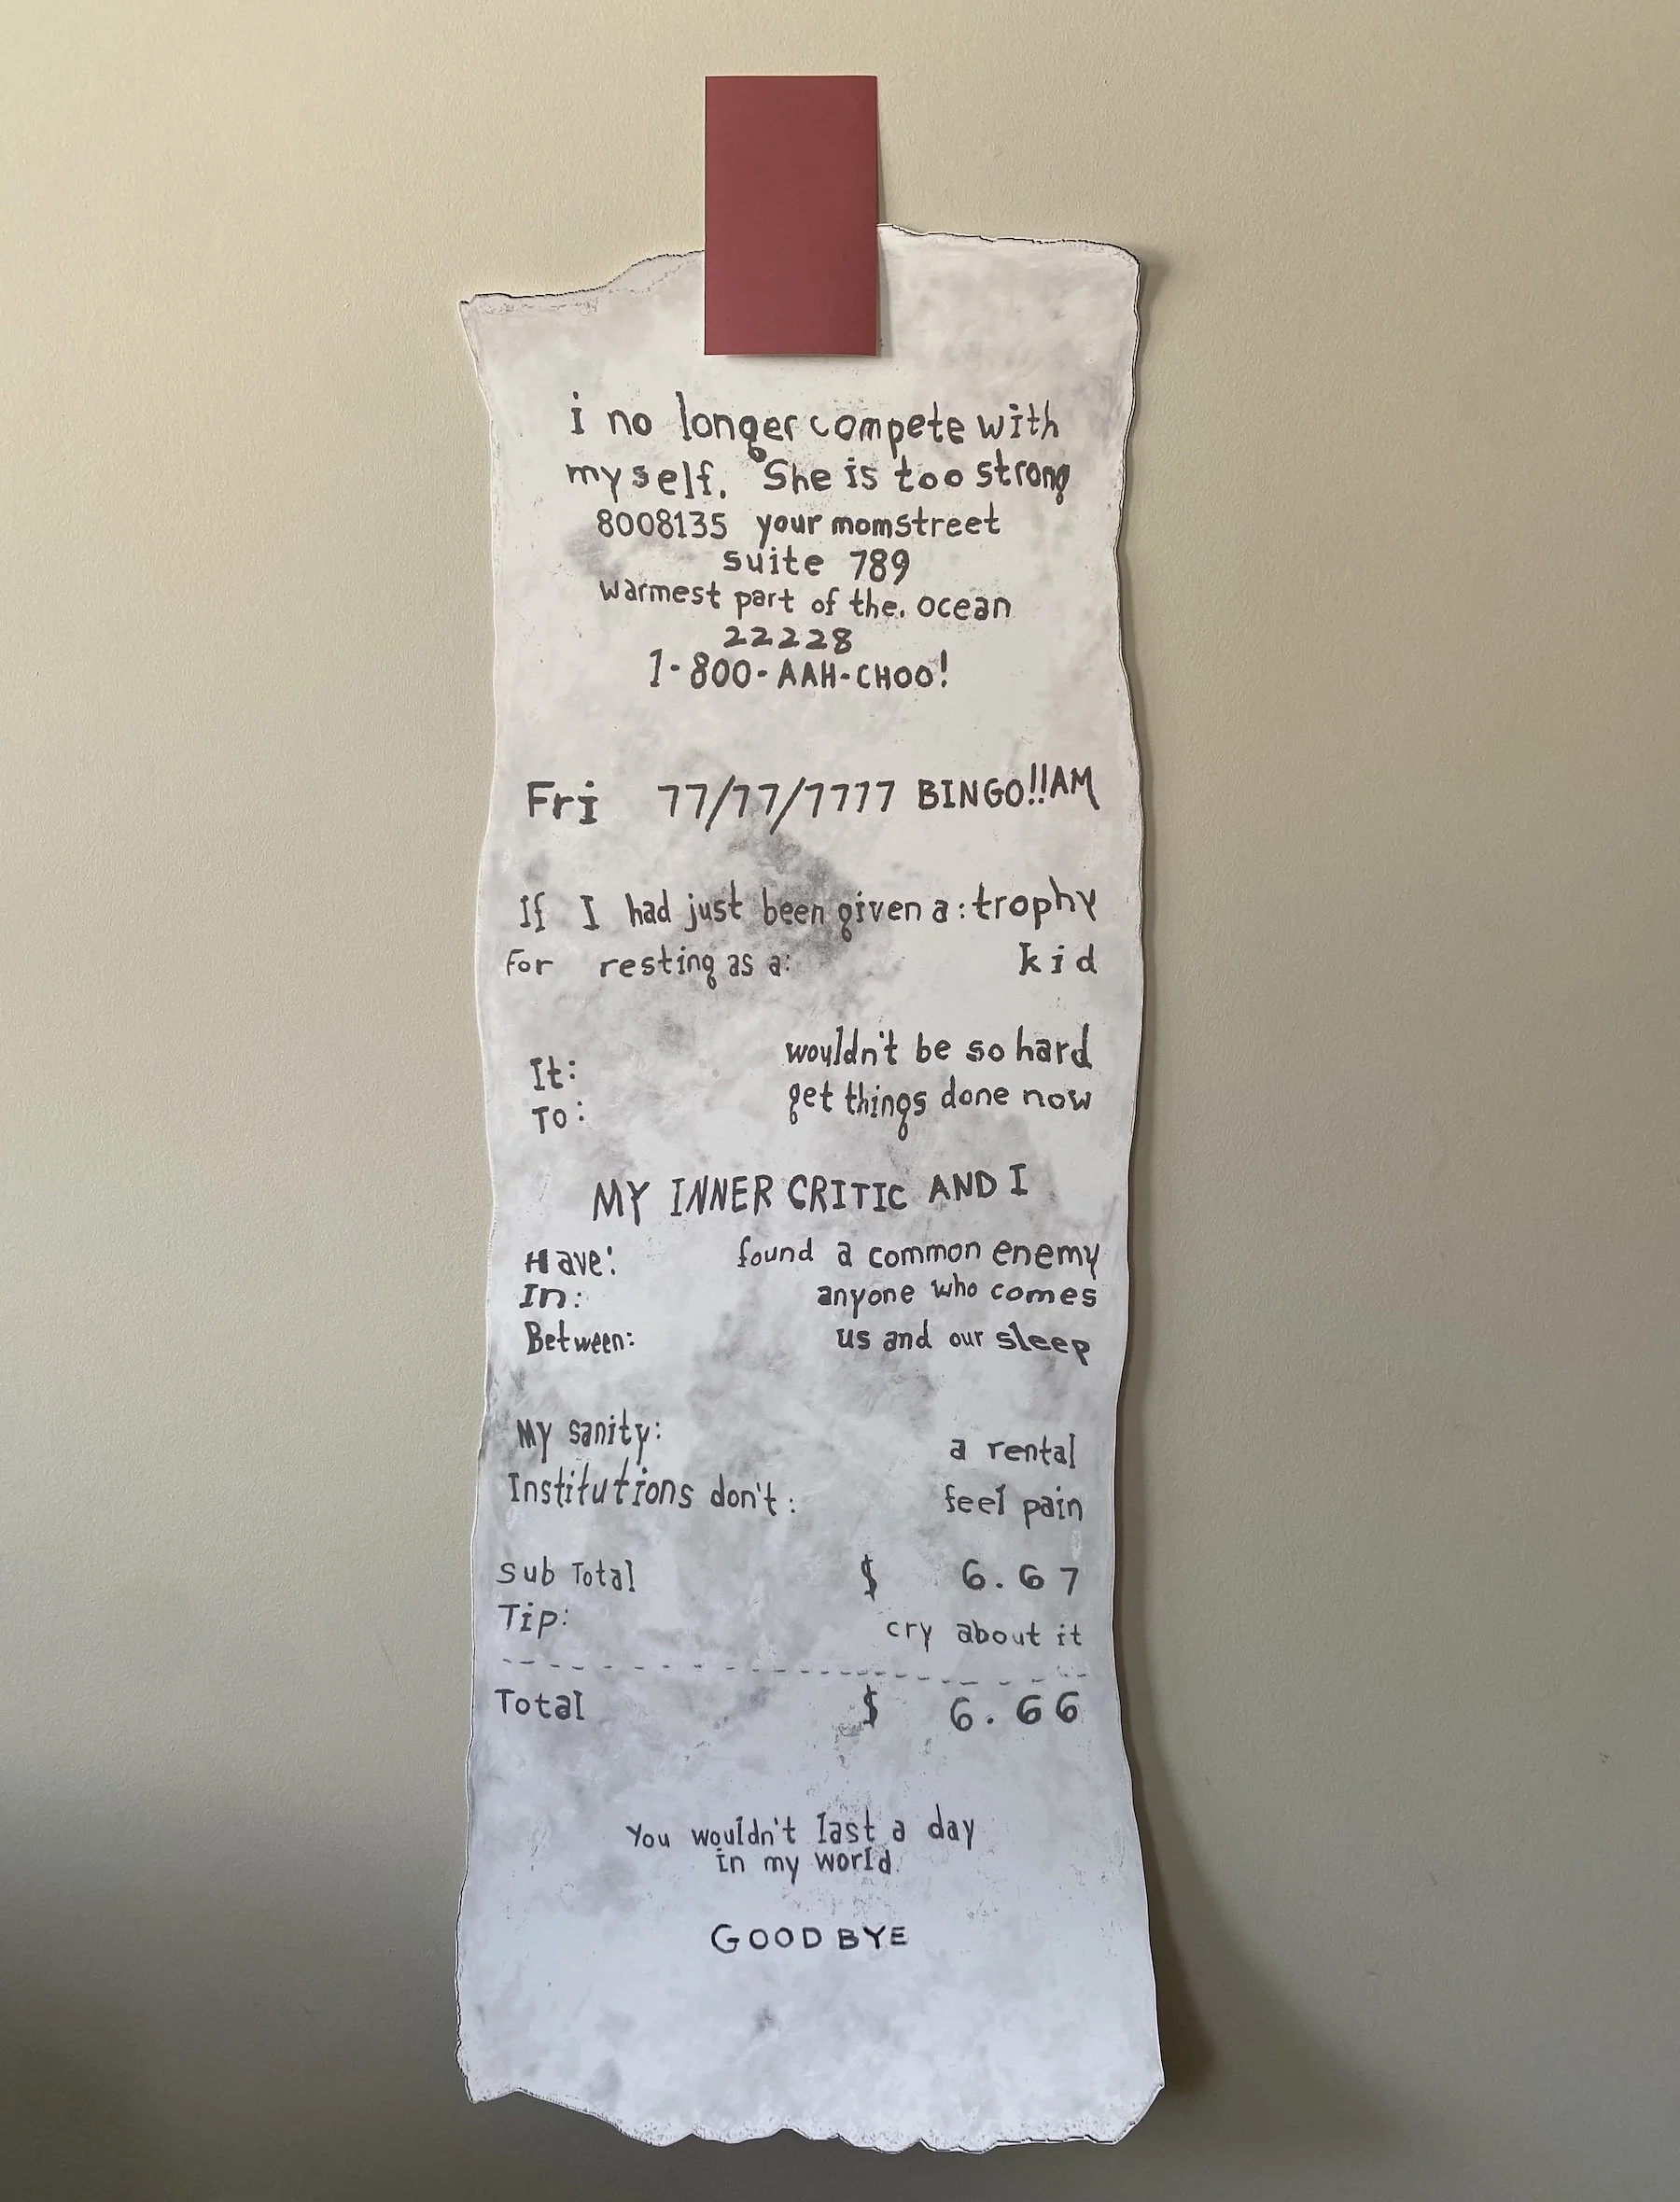 i no longer compete with
myself. She is too strong
8008135 your momstreet
suite 789
warmest part of the. ocean
22228
1-800-AAH-CHOO!
Fri 77/77/7777 BINGO!!AM
If I had just been given a: trophy
For resting as a: kid
It: wouldn't be so hard
To: get things done now
MY INNER CRITIC AND I
Have: found a common enemy
In: anyone who comes
Between: us and our sleep
My sanity: a rental
Institutions don't: feel pain
Sub Total $ 6.67
Tip: cry about it
Total $ 6.66
You wouldn't last a day
in my world.
GOODBYE